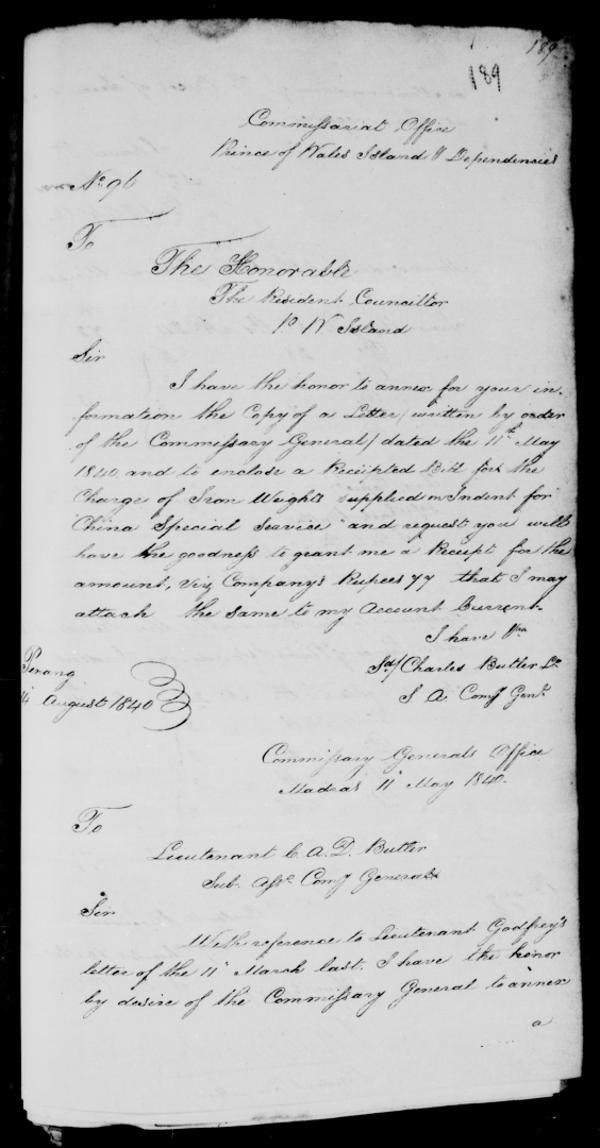 189
189
Commissariat Office
Prince of Wales Island & Dependencies
No. 96
To
The Honorable
The Resident Councillor
P W Island
Sir
I have the honor to annex for your in-
formation the Copy of a Letter (written by order
of the Commissary General) dated the 11th May
1840 and to enclose a Receipted Bill for the
Charge of Iron Weights supplied on Indent for
"China Special Service" and request you will
have the goodness to grant me a Receipt for the
amount, viz Company's Rupees 77 that I may
attach the same to my Account Current.
I have &ca
Sd/ Charles Butler Lt
S. A. Comy Genl
Penang
August 1840
Commissary Generals Office
Madras 11 May 1840.
To
Lieutenant C. A. D. Butler
Sub. Asst. Comy General
Sir
With reference to Lieutenant Godfrey's
letter of the 11 March last, I have the honor
by desire of the Commissary General to annex
a